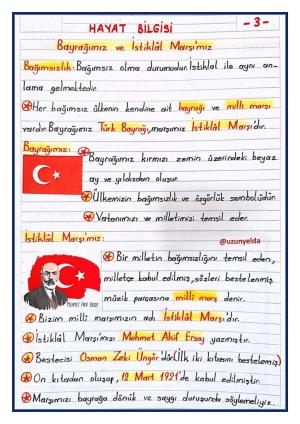 HAYAT BİLGİSİ
-3-
Bayrağımız ve İstiklâl Marşı'mız
Bağımsızlık: Bağımsız olma durumudur. İstiklal ile aynı an-
lama gelmektedir.
Her bağımsız ülkenin kendine ait bayrağı ve milli marşı
vardır. Bayrağımız Türk Bayrağı, marşımız İstiklâl Marşı'dır.
Bayrağımız:
Bayrağımız kırmızı zemin üzerindeki beyaz
ay ve yıldızdan oluşur.
Ülkemizin bağımsızlık ve özgürlük sembolüdür.
Vatanımızı ve milletimizi temsil eder.
İstiklâl Marşı'mız:
@uzunyelda
Bir milletin bağımsızlığını temsil eden,
milletçe kabul edilmiş, sözleri bestelenmiş
müzik parçasına milli marş denir.
MEHMET AKİF ERSOY
Bizim milli marşımızın adı İstiklâl Marşı'dır.
İstiklâl Marşı'mızı Mehmet Akif Ersoy yazmıştır.
Bestecisi Osman Zeki Üngör'dür. (İlk iki kıtasını bestelemiş)
On kıtadan oluşup, 12 Mart 1921'de kabul edilmiştir.
Marşımızı bayrağa dönük ve saygı duruşunda söylemeliyiz.